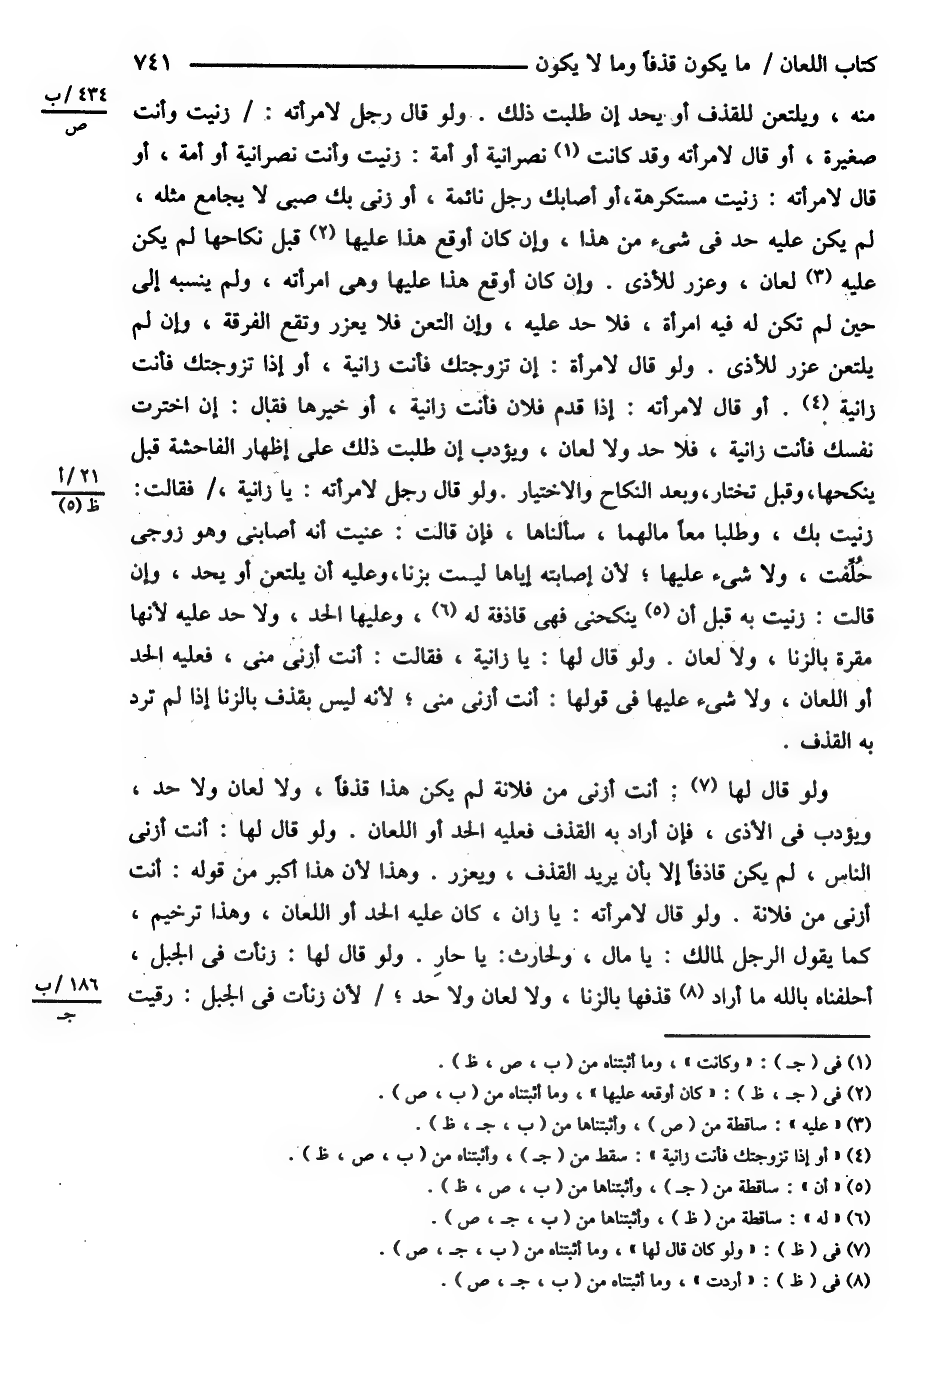 كتاب اللعان / ما يكون قذفاً وما لا يكون ٧٤١
٤٣٤ /ب
ص
منه ، ويلتعن للقذف أو يحد إن طلبت ذلك . ولو قال رجل لامرأته : / زنيت وأنت
صغيرة ، أو قال لامرأته وقد كانت (١) نصرانية أو أمة : زنيت وأنت نصرانية أو أمة ، أو
قال لامرأته : زنيت مستكرهة،أو أصابك رجل نائمة ، أو زنى بك صبى لا يجامع مثله ،
لم يكن عليه حد فى شىء من هذا ، وإن كان أوقع هذا عليها (٢) قبل نكاحها لم يكن
عليه (٣) لعان ، وعزر للأذى . وإن كان أوقع هذا عليها وهى امرأته ، ولم ينسبه إلى
حين لم تكن له فيه امرأة ، فلا حد عليه ، وإن التعن فلا يعزر وتقع الفرقة ، وإن لم
يلتعن عزر للأذى . ولو قال لامرأة : إن تزوجتك فأنت زانية ، أو إذا تزوجتك فأنت
زانية (٤) . أو قال لامرأته : إذا قدم فلان فأنت زانية ، أو خيرها فقال : إن اخترت
نفسك فأنت زانية ، فلا حد ولا لعان ، ويؤدب إن طلبت ذلك على إظهار الفاحشة قبل
ينكحها،وقبل تختار،وبعد النكاح والاختيار .ولو قال رجل لامرأته : يا زانية ،/ فقالت:
٢١ /أ
ظ (٥)
زنيت بك ، وطلبا معاً مالهما ، سألناها ، فإن قالت : عنيت أنه أصابنى وهو زوجى
حُلِّفت ، ولا شىء عليها ؛ لأن إصابته إياها ليست بزنا،وعليه أن يلتعن أو يحد ، وإن
قالت : زنيت به قبل أن (٥) ينكحنى فهى قاذفة له (٦) ، وعليها الحد ، ولا حد عليه لأنها
مقرة بالزنا ، ولا لعان . ولو قال لها : يا زانية ، فقالت : أنت أزنى منى ، فعليه الحد
أو اللعان ، ولا شىء عليها فى قولها : أنت أزنى منى ؛ لأنه ليس بقذف بالزنا إذا لم ترد
به القذف .
ولو قال لها (٧) : أنت أزنى من فلانة لم يكن هذا قذفاً ، ولا لعان ولا حد ،
ويؤدب فى الأذى ، فإن أراد به القذف فعليه الحد أو اللعان . ولو قال لها : أنت أزنى
الناس ، لم يكن قاذفاً إلا بأن يريد القذف ، ويعزر . وهذا لأن هذا أكبر من قوله : أنت
أزنى من فلانة . ولو قال لامرأته : يا زان ، كان عليه الحد أو اللعان ، وهذا ترخيم ،
كما يقول الرجل لمالك : يا مال ، ولحارث: يا حار . ولو قال لها : زنأت فى الجبل ،
أحلفناه بالله ما أراد (٨) قذفها بالزنا ، ولا لعان ولا حد ؛ / لأن زنأت فى الجبل : رقيت
١٨٦ /ب
جـ
(١) فى ( جـ ) : « وكانت » ، وما أثبتناه من ( ب ، ص ، ظ ) .
(٢) فى ( جـ ، ظ ) : « كان أوقعه عليها » ، وما أثبتناه من ( ب ، ص ) .
(٣) « عليه » : ساقطة من ( ص ) ، وأثبتناها من ( ب ، جـ ، ظ ) .
(٤) « أو إذا تزوجتك فأنت زانية » : سقط من ( جـ ) ، وأثبتناه من ( ب ، ص ، ظ ) .
(٥) « أن » : ساقطة من ( جـ ) ، وأثبتناها من ( ب ، ص ، ظ ) .
(٦) « له » : ساقطة من ( ظ ) ، وأثبتناها من ( ب ، جـ ، ص ) .
(٧) فى ( ظ ) : « ولو كان قال لها » ، وما أثبتناه من ( ب ، جـ ، ص ) .
(٨) فى ( ظ ) : « أردت » ، وما أثبتناه من ( ب ، جـ ، ص ) .